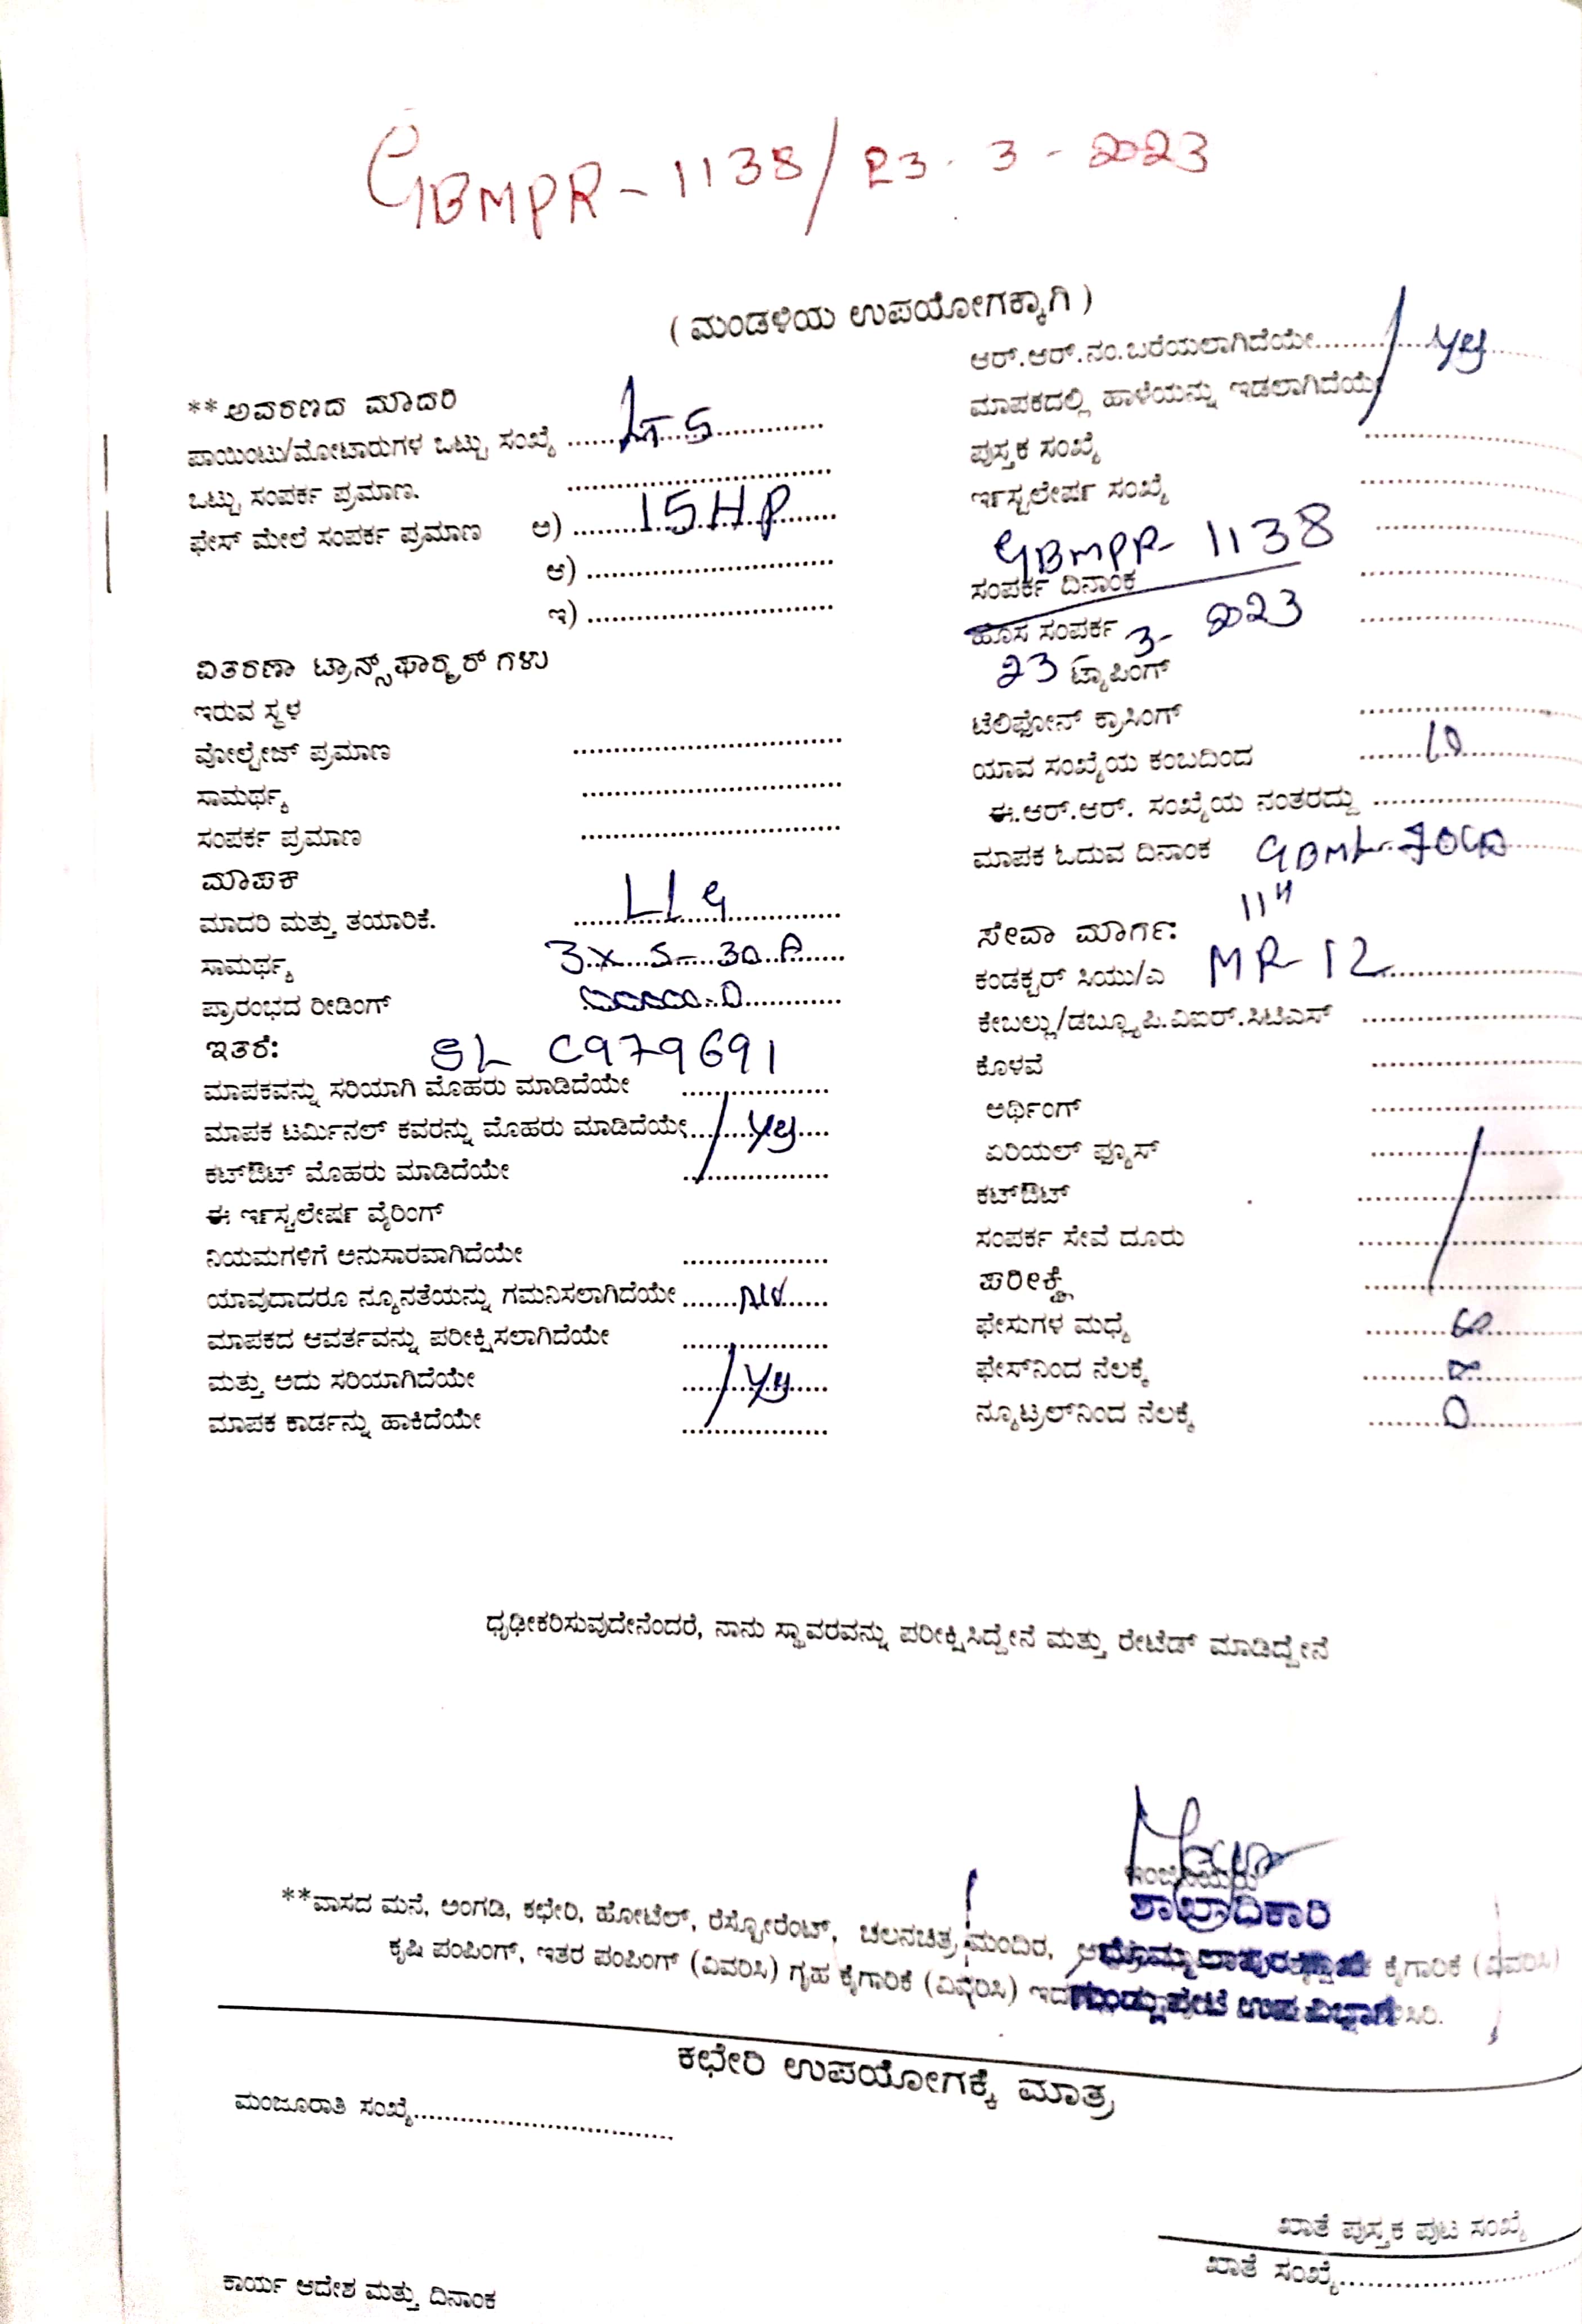 GBMPR - 1138 / 23 - 3 - 2023
( ಮಂಡಳಿಯ ಉಪಯೋಗಕ್ಕಾಗಿ )
**ಆವರಣದ ಮಾದರಿ
ಪಾಯಿಂಟು/ಮೋಟಾರುಗಳ ಒಟ್ಟು ಸಂಖ್ಯೆ ........ LT 5 ........
ಒಟ್ಟು ಸಂಪರ್ಕ ಪ್ರಮಾಣ. ................
ಫೇಸ್ ಮೇಲೆ ಸಂಪರ್ಕ ಪ್ರಮಾಣ ಅ) ........ 15 HP ........
ಆ) ................
ಇ) ................
ವಿತರಣಾ ಟ್ರಾನ್ಸ್‌ಫಾರ್‍ಮರ್ ಗಳು
ಇರುವ ಸ್ಥಳ
ವೋಲ್ಟೇಜ್ ಪ್ರಮಾಣ ................
ಸಾಮರ್ಥ್ಯ ................
ಸಂಪರ್ಕ ಪ್ರಮಾಣ ................
ಮಾಪಕ
ಮಾದರಿ ಮತ್ತು ತಯಾರಿಕೆ. ........ L I G ........
ಸಾಮರ್ಥ್ಯ 3 x 5 - 30 A
ಪ್ರಾರಂಭದ ರೀಡಿಂಗ್ 00000.0
ಇತರೆ: SL C979691
ಮಾಪಕವನ್ನು ಸರಿಯಾಗಿ ಮೊಹರು ಮಾಡಿದೆಯೇ ................
ಮಾಪಕ ಟರ್ಮಿನಲ್ ಕವರನ್ನು ಮೊಹರು ಮಾಡಿದೆಯೇ ........ Yes ....
ಕಟ್‌ಔಟ್ ಮೊಹರು ಮಾಡಿದೆಯೇ ................
ಈ ಇನ್‌ಸ್ಟಲೇಷನ್ ವೈರಿಂಗ್
ನಿಯಮಗಳಿಗೆ ಅನುಸಾರವಾಗಿದೆಯೇ ................
ಯಾವುದಾದರೂ ನ್ಯೂನತೆಯನ್ನು ಗಮನಿಸಲಾಗಿದೆಯೇ ........
ಮಾಪಕದ ಆವರ್ತವನ್ನು ಪರೀಕ್ಷಿಸಲಾಗಿದೆಯೇ ................
ಮತ್ತು ಅದು ಸರಿಯಾಗಿದೆಯೇ ........ Yes ....
ಮಾಪಕ ಕಾರ್ಡನ್ನು ಹಾಕಿದೆಯೇ ................
ಆರ್.ಆರ್.ನಂ.ಬರೆಯಲಾಗಿದೆಯೇ ........ Yes ....
ಮಾಪಕದಲ್ಲಿ ಹಾಳೆಯನ್ನು ಇಡಲಾಗಿದೆಯೇ
ಪುಸ್ತಕ ಸಂಖ್ಯೆ ................
ಇನ್‌ಸ್ಟಲೇಷನ್ ಸಂಖ್ಯೆ ................
GBMPR 1138
ಸಂಪರ್ಕ ದಿನಾಂಕ ................
ಹೊಸ ಸಂಪರ್ಕ ................
23 - 3 - 2023
ಟ್ಯಾಪಿಂಗ್
ಟೆಲಿಫೋನ್ ಕ್ರಾಸಿಂಗ್ ................
ಯಾವ ಸಂಖ್ಯೆಯ ಕಂಬದಿಂದ ........ 10 ........
ಈ.ಆರ್.ಆರ್. ಸಂಖ್ಯೆಯ ನಂತರದ್ದು ................
ಮಾಪಕ ಓದುವ ದಿನಾಂಕ
ಸೇವಾ ಮಾರ್ಗ:
ಕಂಡಕ್ಟರ್ ಸಿಯು/ಎ MR 12 ........
ಕೇಬಲ್ಲು/ಡಬ್ಲ್ಯೂಪಿ.ವಿಐರ್.ಸಿಟಿಎಸ್ ................
ಕೊಳವೆ ................
ಅರ್ಥಿಂಗ್ ................
ಏರಿಯಲ್ ಫ್ಯೂಸ್ ................
ಕಟ್‌ಔಟ್ ................
ಸಂಪರ್ಕ ಸೇವೆ ದೂರು ................
ಪರೀಕ್ಷೆ ................
ಫೇಸುಗಳ ಮಧ್ಯೆ ................
ಫೇಸ್‌ನಿಂದ ನೆಲಕ್ಕೆ ................
ನ್ಯೂಟ್ರಲ್‌ನಿಂದ ನೆಲಕ್ಕೆ ........ 0 ........
ಧೃಢೀಕರಿಸುವುದೇನೆಂದರೆ, ನಾನು ಸ್ಥಾವರವನ್ನು ಪರೀಕ್ಷಿಸಿದ್ದೇನೆ ಮತ್ತು ರೇಟೆಡ್ ಮಾಡಿದ್ದೇನೆ
ಶಾಖಾಧಿಕಾರಿ
**ವಾಸದ ಮನೆ, ಅಂಗಡಿ, ಕಛೇರಿ, ಹೋಟೆಲ್, ರೆಸ್ಟೋರೆಂಟ್, ಚಲನಚಿತ್ರ ಮಂದಿರ, ಕೈಗಾರಿಕೆ (ವಿವರಿಸಿ)
ಕೃಷಿ ಪಂಪಿಂಗ್, ಇತರ ಪಂಪಿಂಗ್ (ವಿವರಿಸಿ) ಗೃಹ ಕೈಗಾರಿಕೆ (ವಿವರಿಸಿ) ಗುಂಡ್ಲುಪೇಟೆ ಉಪ ವಿಭಾಗ
ಕಛೇರಿ ಉಪಯೋಗಕ್ಕೆ ಮಾತ್ರ
ಮಂಜೂರಾತಿ ಸಂಖ್ಯೆ................
ಖಾತೆ ಪುಸ್ತಕ ಪುಟ ಸಂಖ್ಯೆ
ಖಾತೆ ಸಂಖ್ಯೆ................
ಕಾರ್ಯ ಆದೇಶ ಮತ್ತು ದಿನಾಂಕ